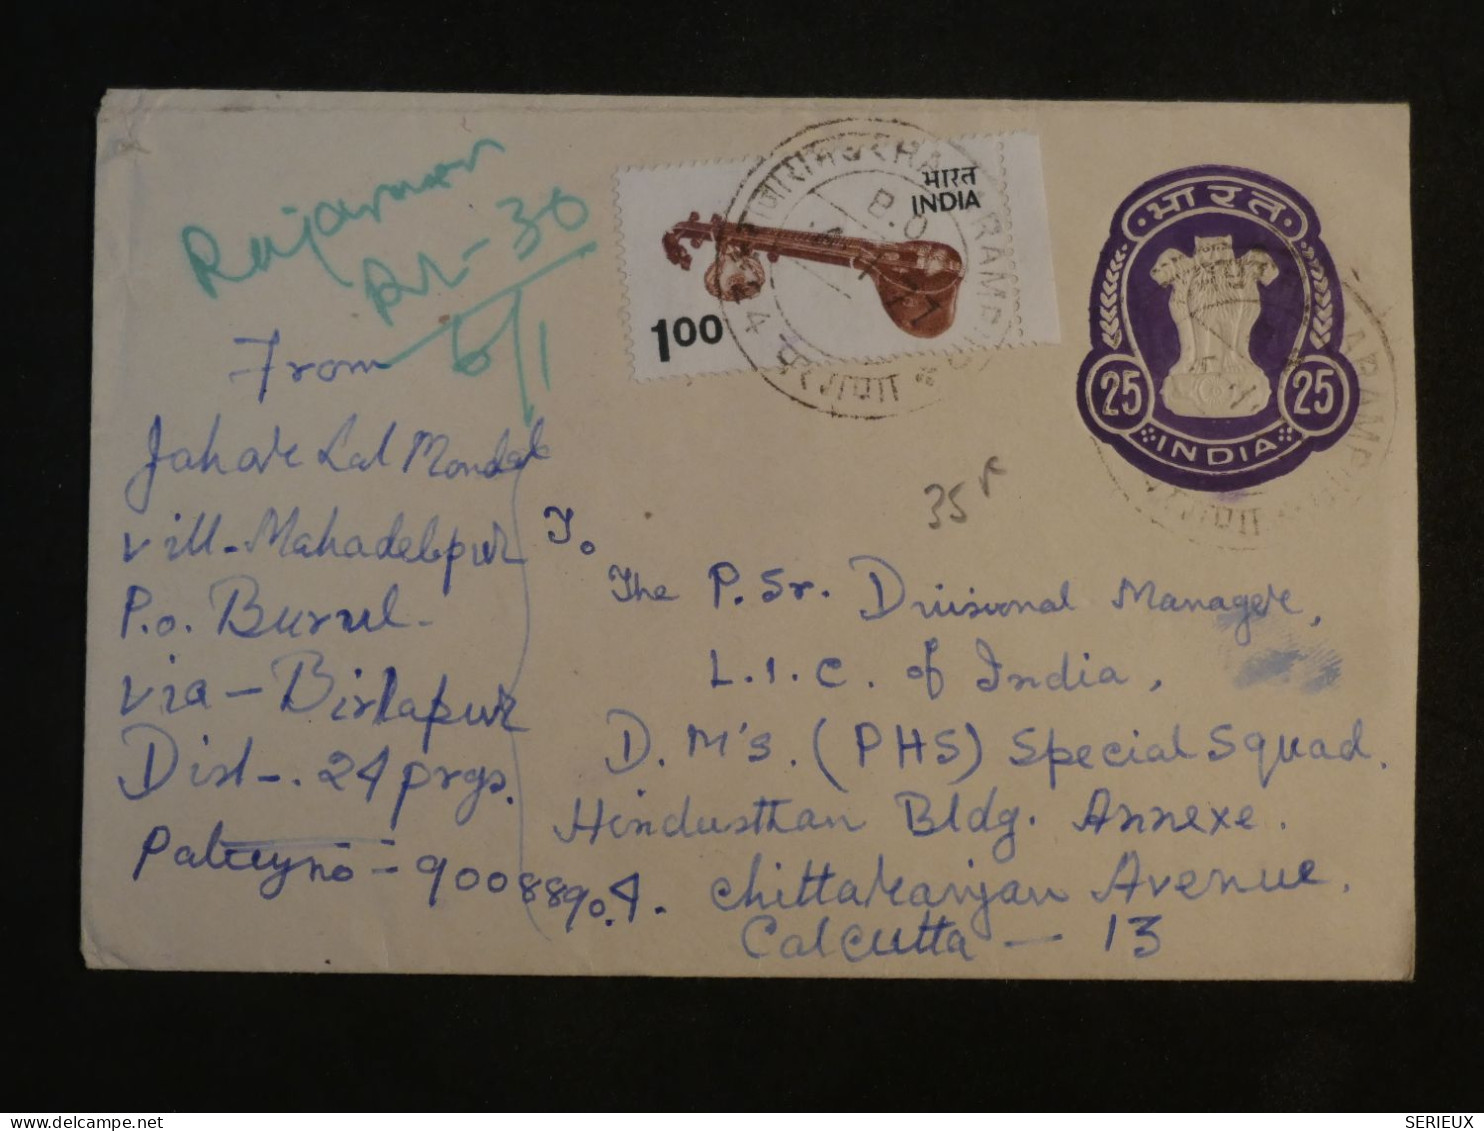 Rajaram
RL-30
6/1
भारत
INDIA
1.00
B.O
भारत
25
25
INDIA
35 r
From
Jahar Lal Mondal
Vill- Mahadebpur
P.o. Burul.
via - Birlapur
Dist-. 24 prgs.
Policy no - 90088904.
To
The P. Sr. Divisional Manager,
L.I.C. of India,
D.M's. (PHS) Special Squad.
Hindusthan Bldg. Annexe.
Chittaranjan Avenue,
Calcutta - 13
Delcampe.net
SERIEUX